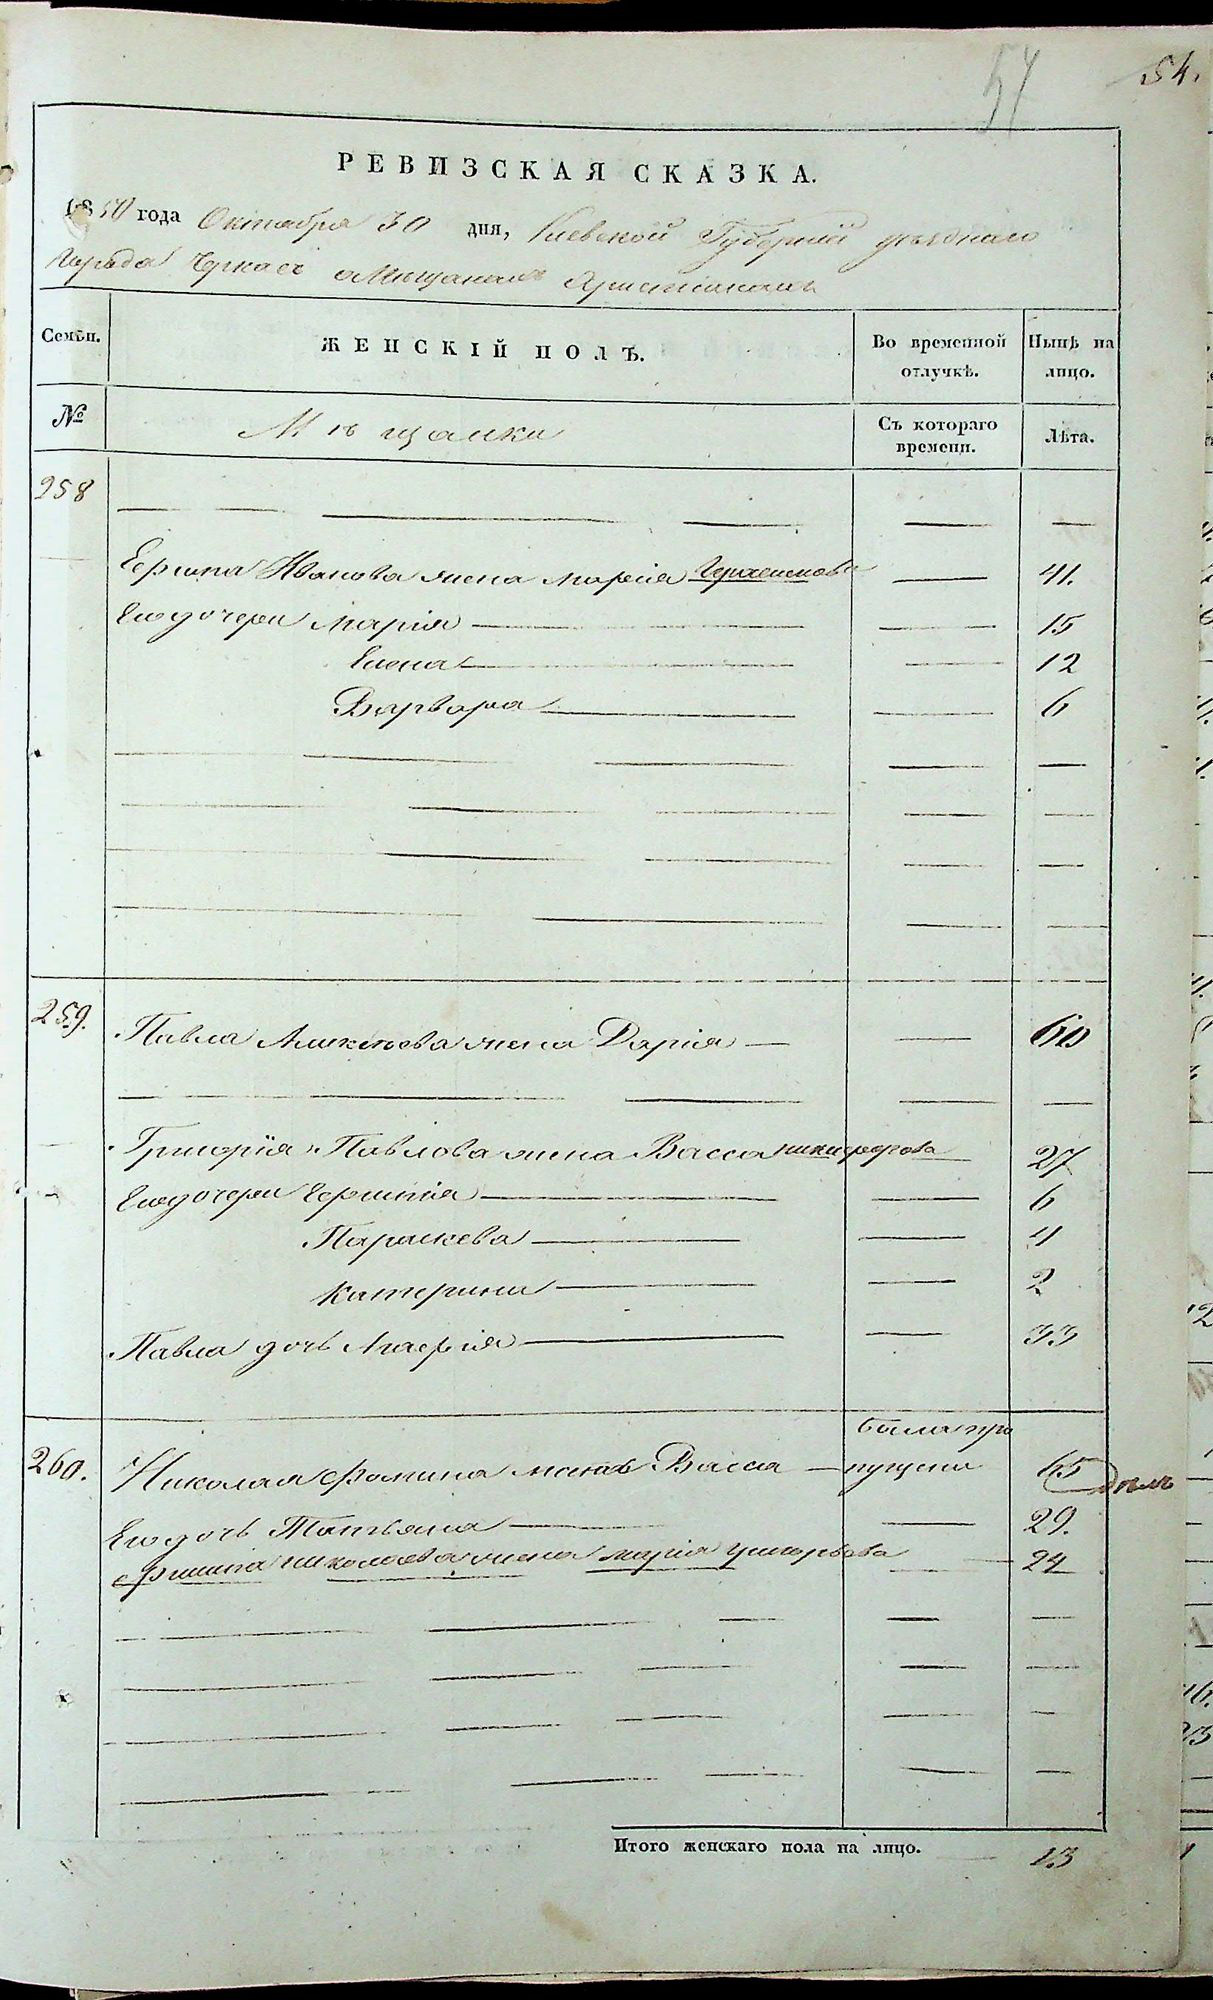 54.
54
РЕВИЗСКАЯ СКАЗКА.
1850 года Октября 30 дня, Киевской Губерніи уѣзднаго
Города Черкасъ о Мѣщанахъ Христіанахъ
Семьи.
ЖЕНСКІЙ ПОЛЪ.
Во временной отлучкѣ.
Нынѣ на лицо.
№
Мѣщанки
Съ котораго времени.
Лѣта.
258
Иванова жена Марія — 41.
Его дочери Марія — 15
Елена — 12
Варвара — 6
259.
Павла Алексѣева жена Дарія — 60
Григорія Павлова жена Васса Никифорова 27
Его дочери — 6
Параскева — 4
Катерина — 2
Павла дочь Марія — 33
260.
Николая Фомина жена Васса — была пропущена 65
Его дочь Татьяна — 29.
Филипа Николаева жена Марія 24
Итого женскаго пола на лицо. 13